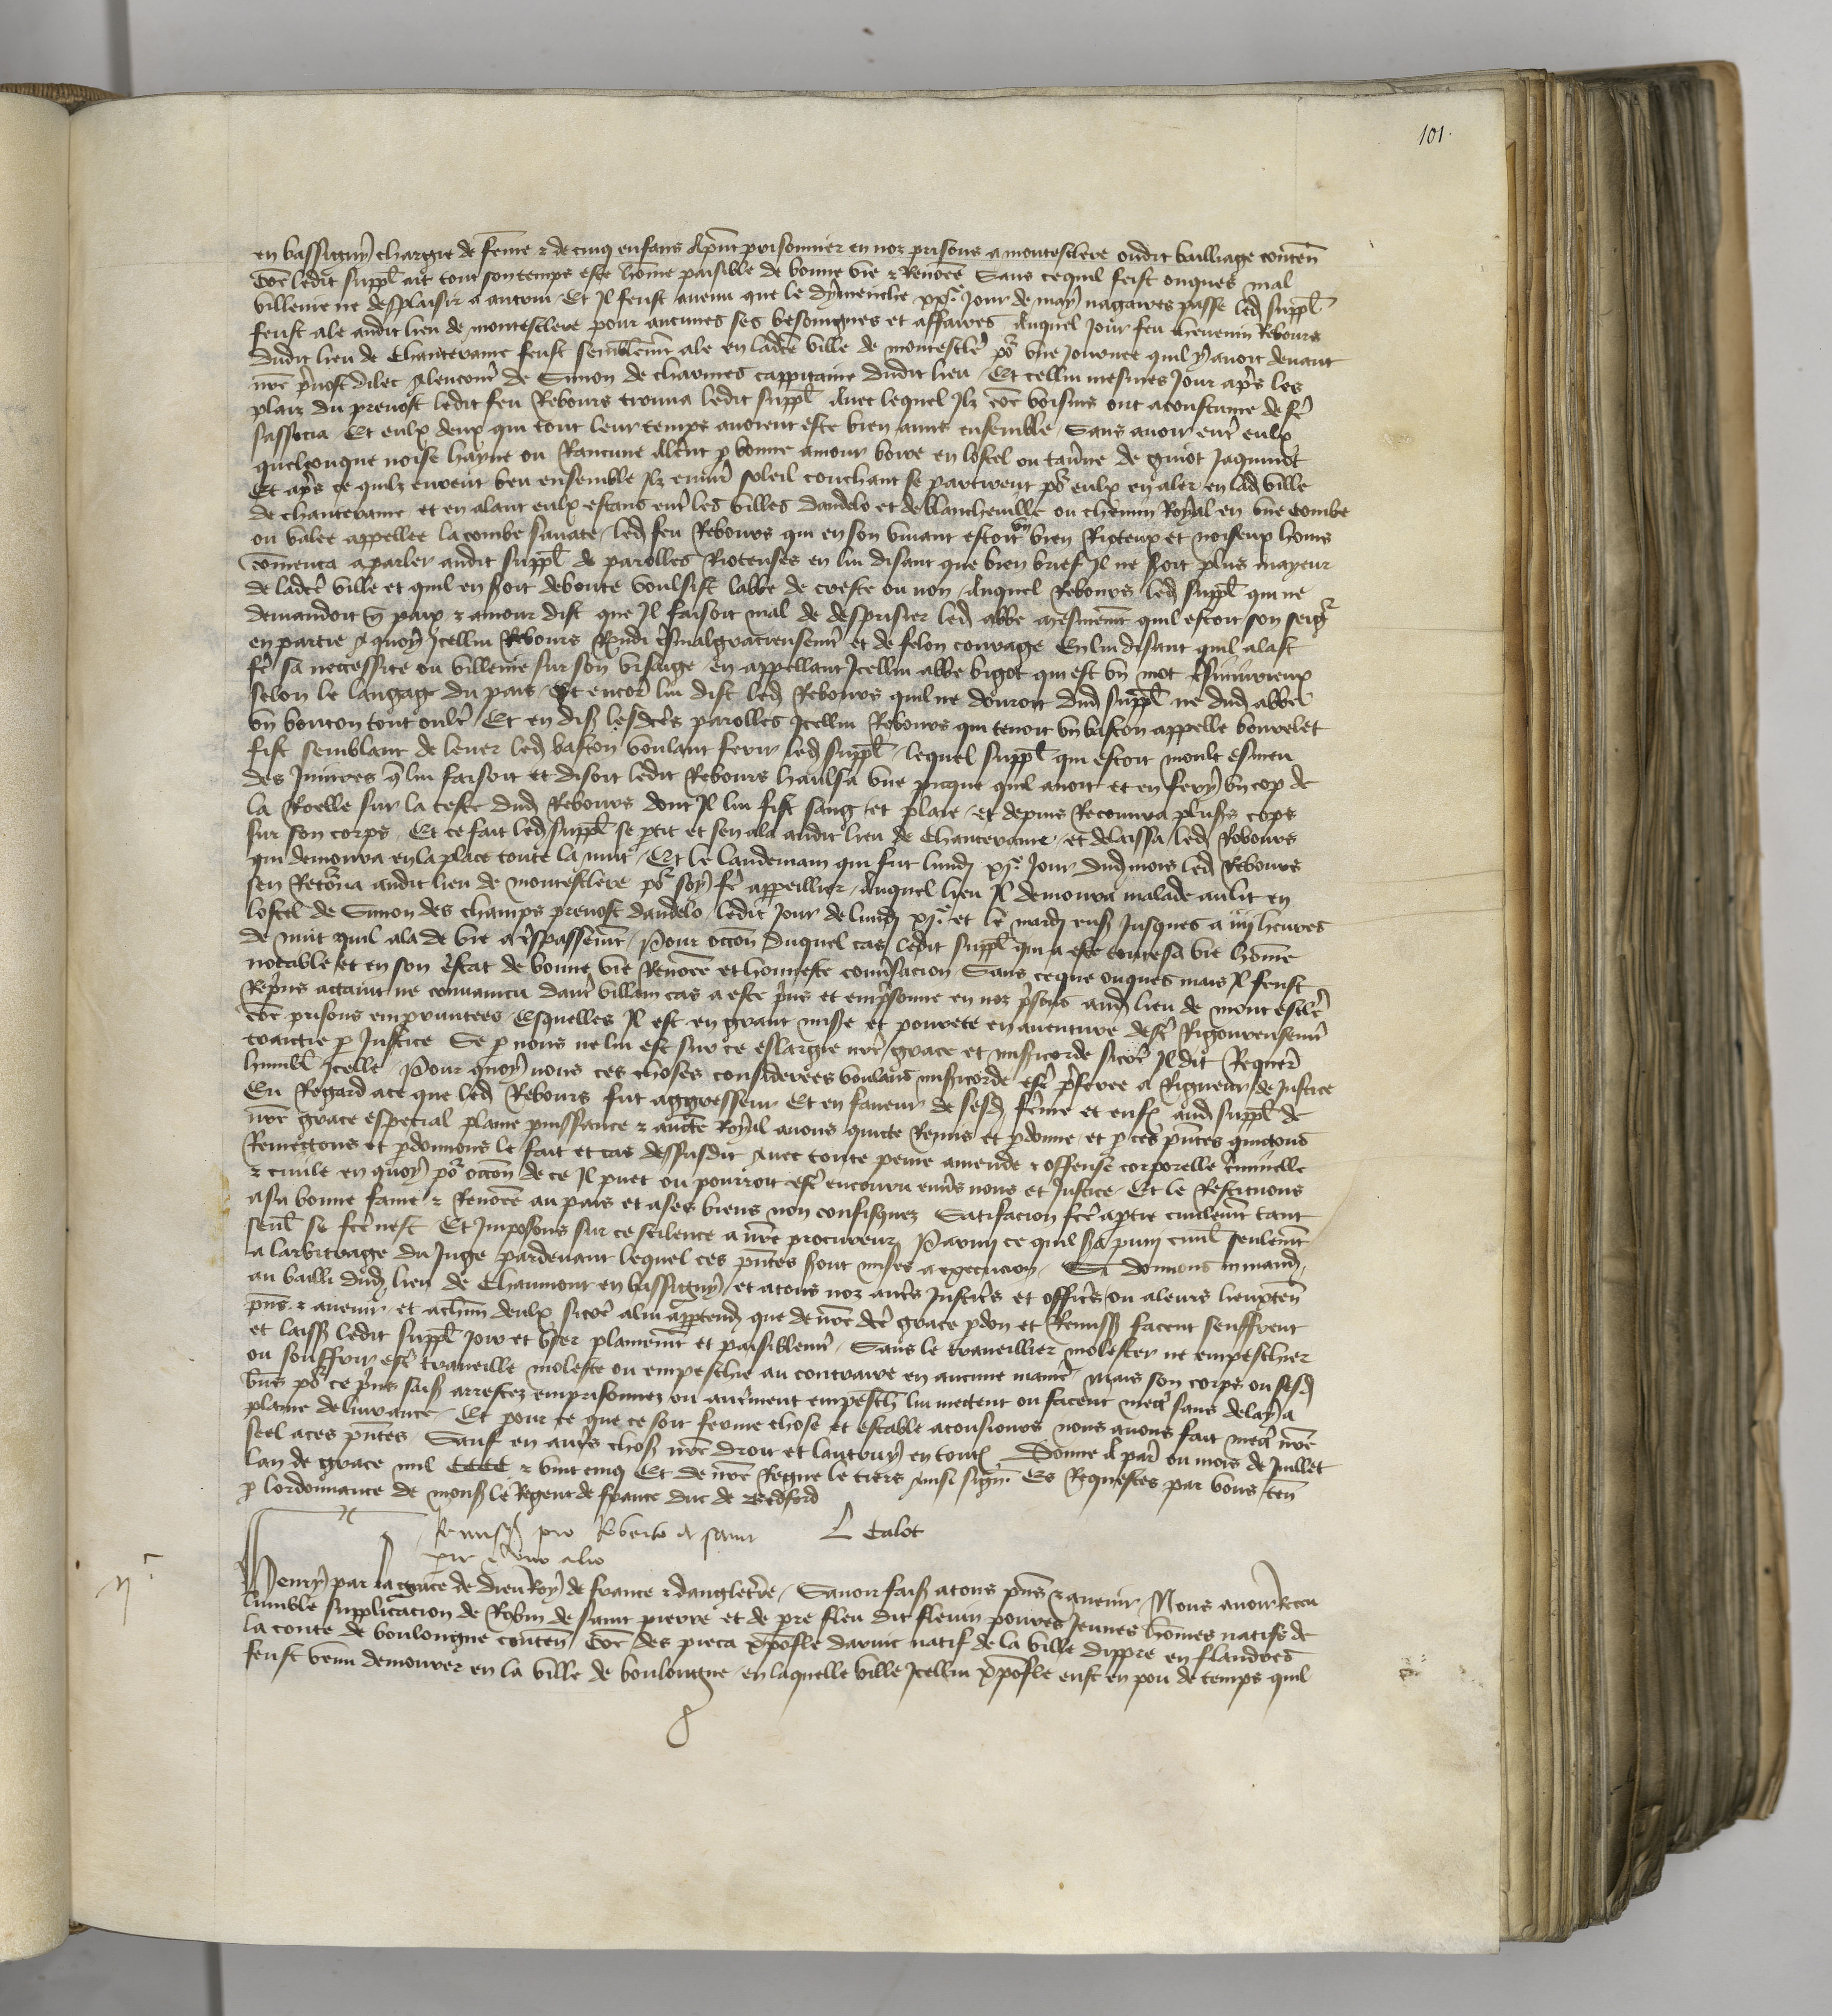 101.
en bassigny chargie de fem̃e & de cinq enfans Apñt prisonnier en noz prisons a montesclere oudit bailliage conteñ
com̃e ledit suppl̃ ait tout son temps este hom̃e paisible de bonne vie & Renom̃ee Sans ce quil feist onques mal
villenie ne desplaisir a autrui Et Il feust avenu que le dymenche xxe Jour de may nagaires passe led suppl̃
feust ale audit lieu de montesclere pour aucunes ses besoingnes et affaires Auquel Jour feu Rebours
dudit lieu de Chanteraine feust semblem̃t ale en ladte ville de montescle po vne Journee quil y avoit devant
nr̃e pr̃vost dilec Alencontr̃ de Simon de charmes cappitaine dudit lieu Et cellui mesmes Jour apr̃s les
plaiz du prevost ledit feu Rebours trouva ledit suppl̃ Avec lequel Ilz com̃e voisins ont acoustume de fe
sassocia Et eulx deux qui tout leur temps avoient este bien amis ensemble Sans avoir entr̃ eulx
quelconque noise hayne ou Rancune Aler̃t p bonne amour boire en lostel ou taṽne de guiot Jaquinot
Et apr̃s ce quilz eurent beu ensemble Ilz envir̃ soleil couchant se partirent po eulx en aler en lad ville
de chanteraine et en alant eulx estans entr̃ les villes dandelo et de blancheville ou chemin Royal en vne combe
ou valee appellee la combe savate led feu Rebours qui en son vivant estoit vn bien Rioteux et noiseux homs
com̃enca a parler audit suppl̃ de parolles Rioteuses en lui disant que bien brief Il ne seroit plus mayeur
de ladte ville et quil en seroit deboute voulsist labbe de creste ou non Auquel Rebours led suppl̃ qui ne
demandoit q̃ paix & amour dist que Il faisoit mal de desprisier led abbe mesmem̃t quil estoit son seigr
en partie A quoy Icellui Rebours Rendi tr̃smalgracieusem̃t et de felon courage En lui disant quil alast
fe sa neccessite ou villenie sur son visaige en appellant Icellui abbe bigot qui est vn mot tr̃s Iniurieux
selon le langage du pais Et encor̃ lui dist led Rebours quil ne donroit dud suppl̃ ne dud abbe
vn bouton tout oultr̃ Et en dis lesdtes parolles Icellui Rebours qui tenoit vn baston appelle bourelet
fist semblant de lever led baston voulant ferir led suppl̃ lequel suppl̃ qui estoit moult esmeu
des Iniures q̃ lui faisoit et disoit ledit Rebours haulsa vne picque quil avoit et en fery vn cop de
la Roelle sur la teste dud Rebours dont Il lui fist sang et plaie et depuis Recouvra plus̃rs cops
sur son corps Et ce fait led suppl̃ se ptit et sen ala audit lieu de Chanteraine et delaissa led Rebours
qui demoura en la place toute la nuit Et le landemain qui fut lundj xxje Jour dud mois led Rebours
sen Retourna audit lieu de montesclere po soy fe appeillier Auquel lieu Il demoura malade au lit en
lostel de Simon des champs prevost dandelo ledit Jour de lundj xxje et le mardj ens Jusques a iiij heures
de nuit quil ala de vie a tr̃spassem̃t Pour occõn duquel cas ledit suppl̃ qui a este toute sa vie hom̃e
notable et en son estat de bonne vie Renom̃ee et honneste conṽsacion Sans ce que onques mais Il feust
Repr̃ns actaint ne convaincu dautr̃ villain cas a este pr̃ns et empr̃sonne en noz pr̃sons aud lieu de montescle
com̃e prisons empruntees Esquelles Il est en grant mis̃e et povrete en aventure destr̃ Rigoureusem̃t
traictie p Justice Se p nous ne lui est sur ce eslargie nr̃e grace et mis̃icorde sicom̃ Il dit Requer̃
humbl̃ Icelle Pour quoy nous ces choses considerees voulans mis̃icorde estr̃ pr̃feree a Rigueur de Justice
Eu Regard a ce que led Rebours fut aggresseur Et en faveur de sesd fem̃e et enfs aud suppl̃ de
nr̃e grace especial plaine puissance & aucte Royal avons quicte Remis et pdonne et p ces pñtes quictons
Remectons et pdonnons le fait et cas dessusdit avec toute peine amende & offense corporelle cr̃iminelle
& civile en quoy po occõn de ce Il puet ou pourroit estr̃ encouru env̾s nous et Justice Et le Restituons
a sa bonne fame & Renom̃ee au pais et a ses biens non confisquez Satifacion fcte a ptie civilem̃t tant
seul̃ se fcte nest Et Imposons sur ce scilence a nr̃e procureur Parmy ce quil sera puny civil̃ seulem̃t
a larbitrage du Juge pardevant lequel ces pñtes seront mises a execucion Si donnons en mand
au bailli dud lieu de Chaumont en bassigny et a tous noz autr̃s Justic̃s et offic̃s ou a leurs lieuxteñ
pñs & avenir et a chũn deulx sicom̃ a lui apptendr que de nr̃e dte grace pdon et Remiss facent seuffrent
et laiss ledit suppl̃ Joir et user plainem̃t et paisiblem̃t Sans le traveillier molester ne empeschier
ou souffrir estr̃ traveille moleste ou empeschie au contraire en aucune manie Mais son corps ou sesd
biens po ce pr̃ns saisis arrestez emprisonnez ou autrement empesch lui mectent ou facent mectr̃ sans delay a
plaine delivrance Et pour ce que ce soit ferme chose et estable a tousiours nous avons fait mectr̃ nr̃e
seel a ces pñtes Sauf en autr̃s choses nr̃e droit et lautruy en toutes Donne A par̃ ou mois de Juillet
lan de grace mil CCCC & vint cinq Et de nr̃e Regne le tiers Ainsi signe Es Requestes par vous teñ
p lordonnance de mons le Regent de france duc de Bedford
L Calot
Remissio pro Roberto de sancto
& uno alio
Henry par la grace de dieu Roy de france & dangleterre Savoir fais a tous pñs & avenir Nous avoir Receu
lumble supplicacion de Robin de saint pierre et de pre fleu dit flevin povres Jeunes hom̃es natifs de
la conte de boulongne conteñ Com̃e des pieca xp̃ofle daruic natif de la ville dippre en flandres
feust venu demourer en la ville de boulongne en laquelle ville Icellui xp̃ofle eust en pou de temps quil